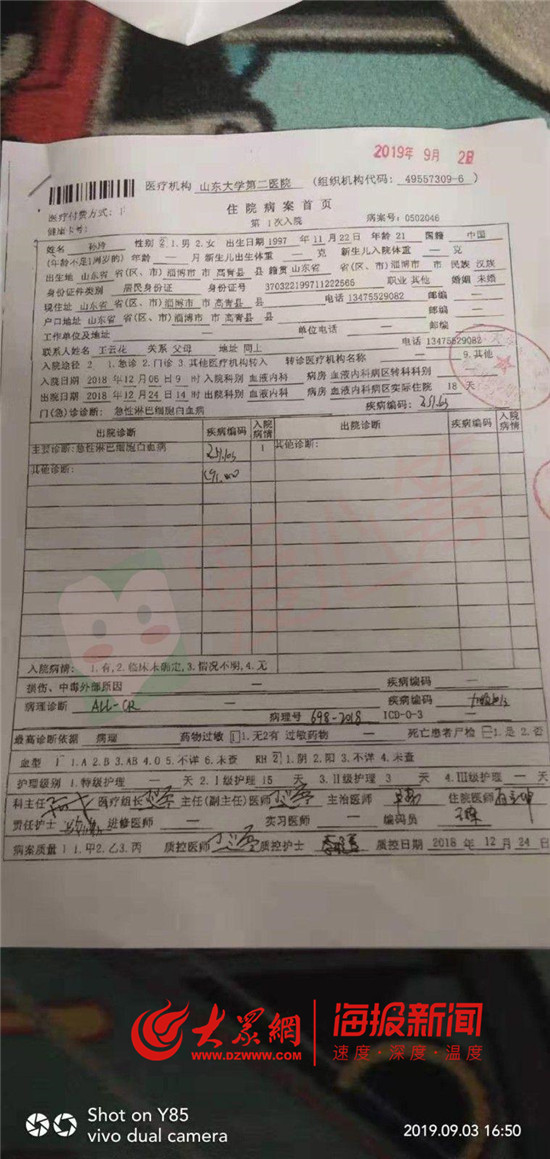 2019年 9月 2日
医疗机构 山东大学第二医院 (组织机构代码: 49557309-6)
医疗付费方式:
住院病案首页
健康卡号:
第 1次入院
病案号: 0502046
姓名 孙玲 性别 2 1.男 2.女 出生日期 1997 年 11 月 22 日 年龄 21 国籍 中国
(年龄不足1周岁的) 年龄 — 月 新生儿出生体重 — 克 新生儿入院体重 — 克
出生地 山东省 省(区、市) 淄博市 市 高青县 县 籍贯 山东省 省(区、市) 淄博市 市 民族 汉族
身份证件类别 居民身份证 身份证号 370322199711222566 职业 其他 婚姻 未婚
现住址 山东省 省(区、市) 淄博市 市 高青县 县 电话 13475529082 邮编 —
户口地址 山东省 省(区、市) 淄博市 市 高青县 县 邮编 —
工作单位及地址 — 单位电话 — 邮编 —
联系人姓名 王云花 关系 父母 地址 同上 电话 13475529082
入院途径 2 1.急诊 2.门诊 3.其他医疗机构转入 转诊医疗机构名称 — 9.其他
入院日期 2018 年 12 月 06 日 9 时 入院科别 血液内科 病房 血液内科病区 转科科别
出院日期 2018 年 12 月 24 日 14 时 出院科别 血液内科 病房 血液内科病区 实际住院 18 天
门(急)诊诊断: 急性淋巴细胞白血病 疾病编码:
出院诊断 疾病编码 入院病情 出院诊断 疾病编码 入院病情
主要诊断: 急性淋巴细胞白血病 1 其他诊断:
其他诊断:
爱心筹
入院病情: 1.有, 2.临床未确定, 3.情况不明, 4.无
损伤、中毒外部原因 — 疾病编码 —
病理诊断 ALL-CR 疾病编码
病理号 698-2018 ICD-O-3 —
最高诊断依据 病理 药物过敏 1.无2有 过敏药物 — 死亡患者尸检 1.是 2.否
血型 1.A 2.B 3.AB 4.O 5.不详 6.未查 RH 1.阴 2.阳 3.不详 4.未查
护理级别 1.特级护理 — 天 2.Ⅰ级护理 15 天 3.Ⅱ级护理 3 天 4.Ⅲ级护理 — 天
科主任 医疗组长 主任(副主任)医师 主治医师 住院医师
责任护士 进修医师 — 实习医师 — 编码员
病案质量 1 1.甲2.乙3.丙 质控医师 质控护士 质控日期 2018 年 12 月 24 日
大眾網 海报新闻
www.dzwww.com 速度·深度·温度
Shot on Y85
vivo dual camera
2019.09.03 16:50